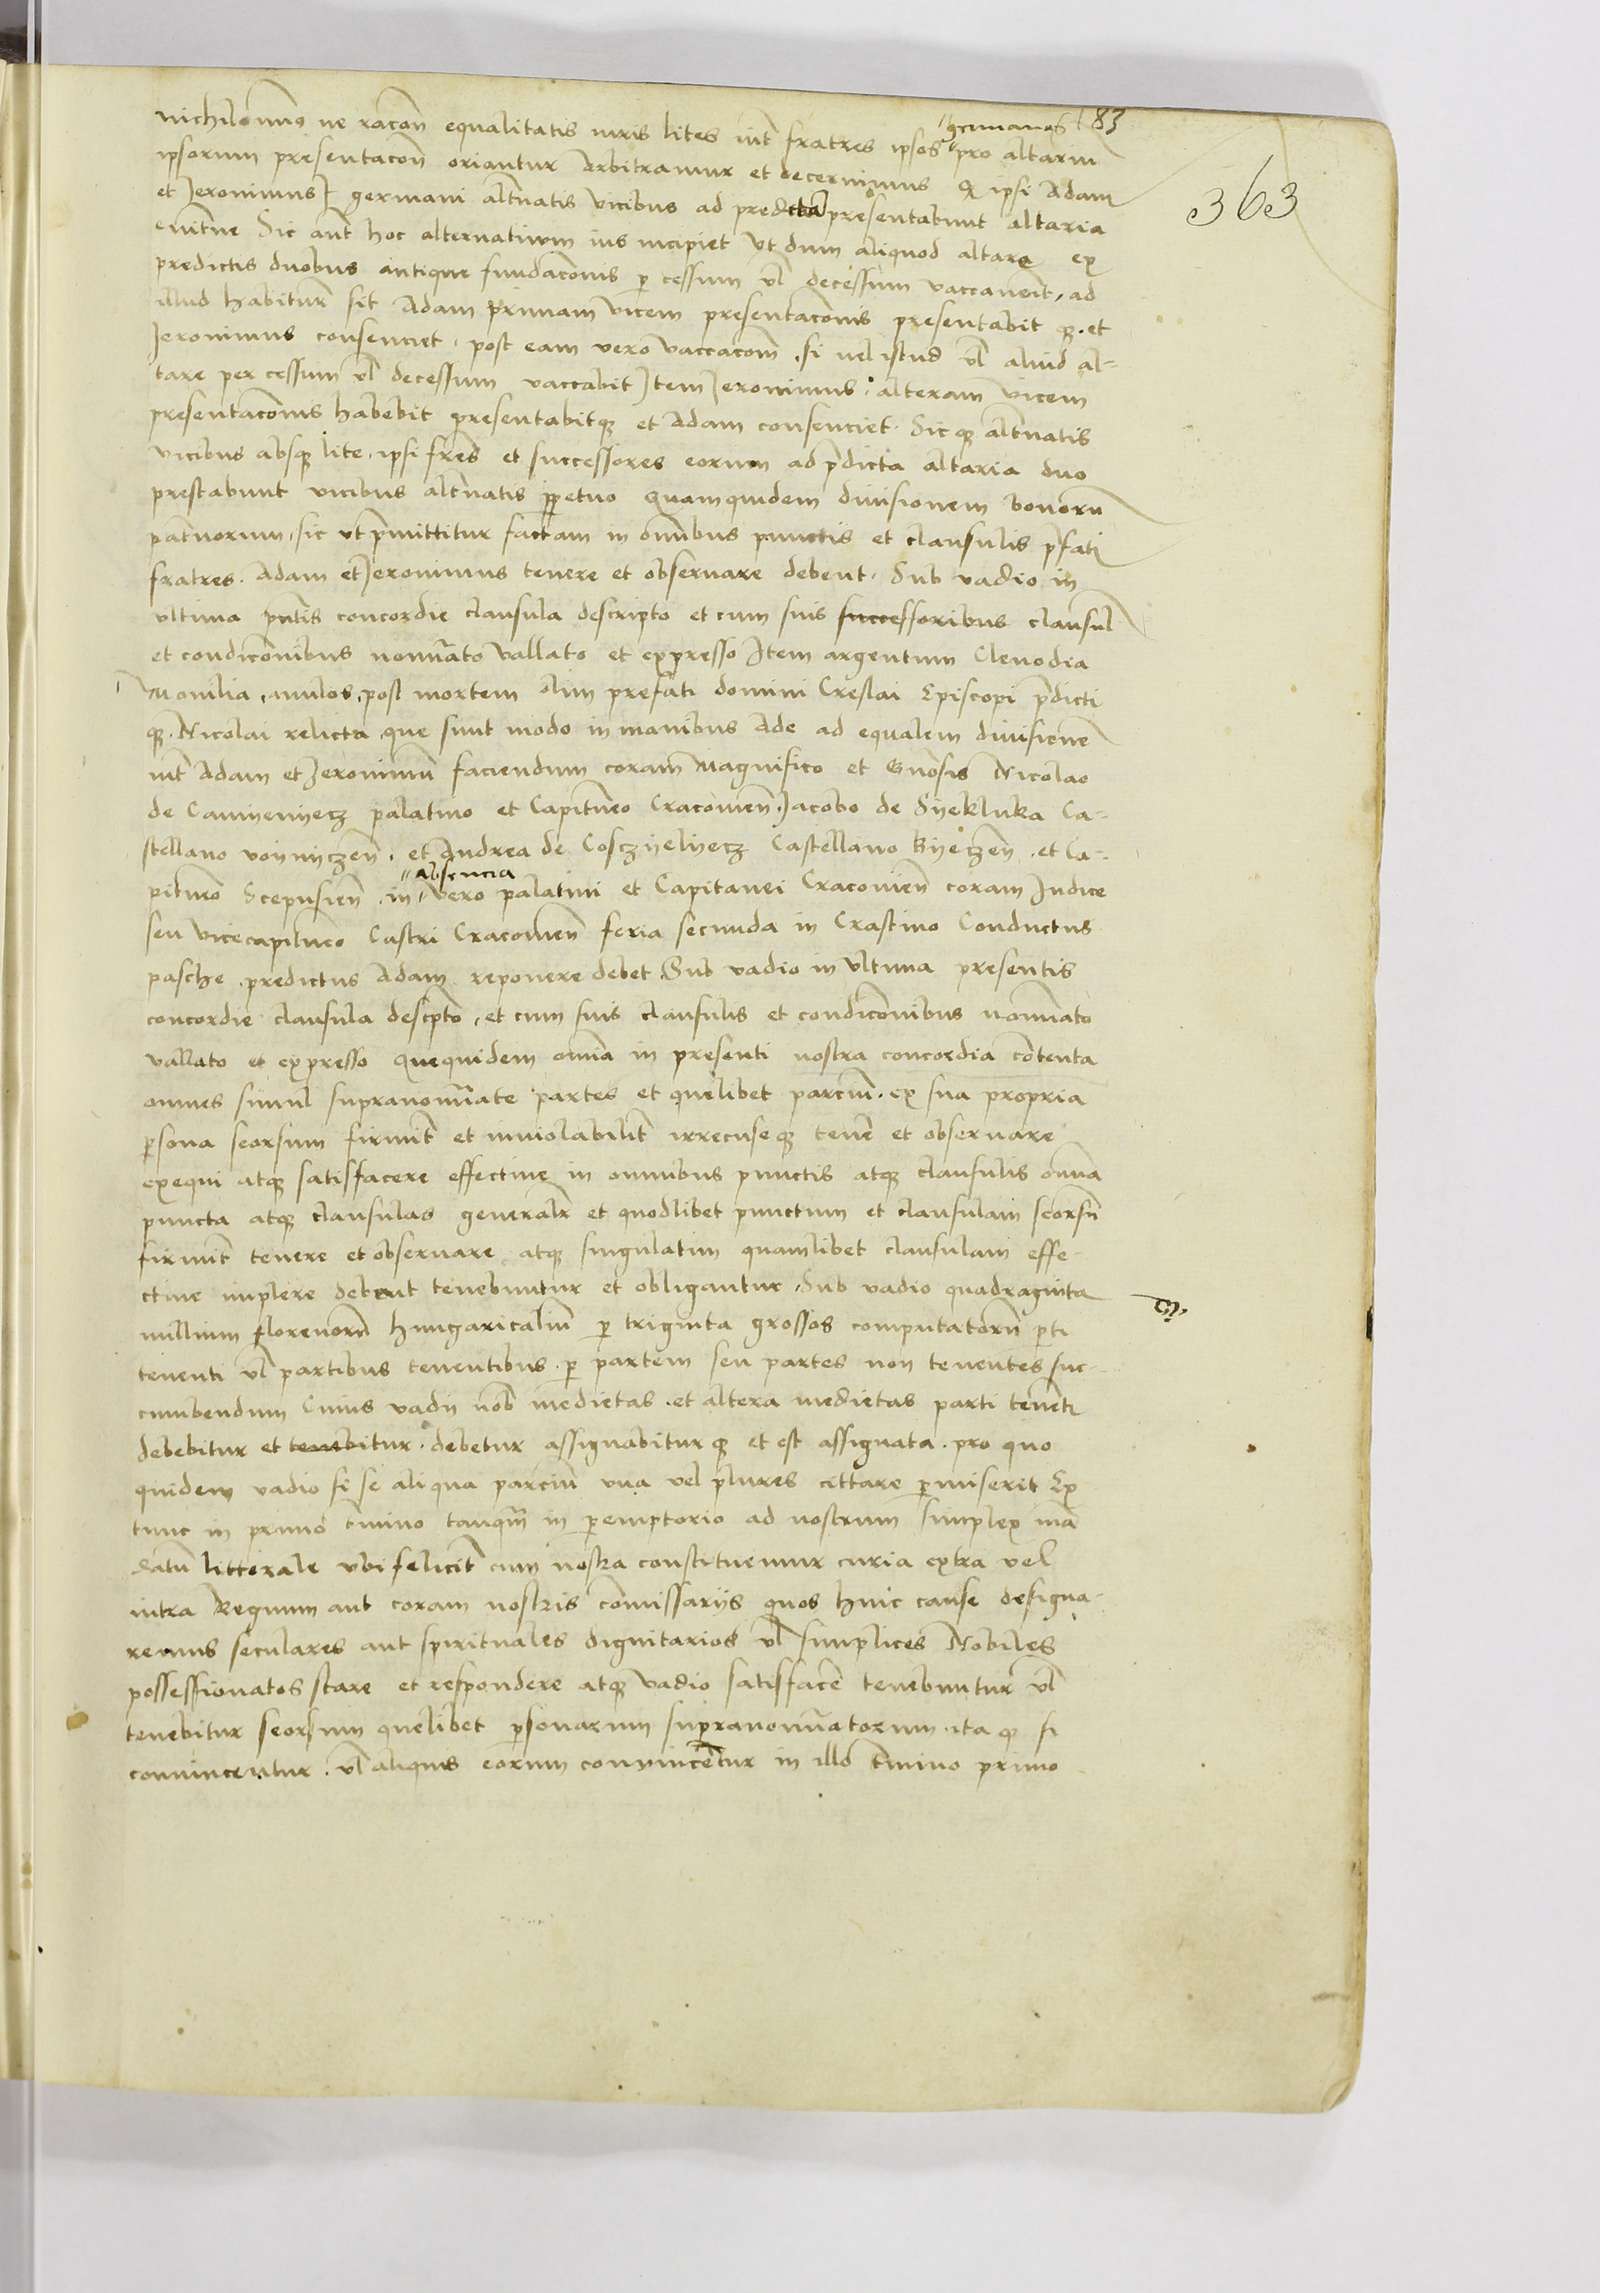 183
363
nichilomin9 ne racōn equalitatis iuris lites int̄ fratres ipsos germanos pro altariu
ipsorum presentacōn oriantur Arbitramur et decernimus Q ipsi Adam
et Jeronimus germani alt̄natis vicibus ad predicta presentabunt altaria
Sic aut̄ hoc alternatiuum ius incipiet vt dum aliquod altare ex
predictis duobus antique fundacōnis p cessum vl decessum vaccauerit, ad
illud habitur̄ sit Adam primam vicem presentacōnis presentabit q3. et
Jeronimus consenciet. post eam vero vaccacom̄, si vel istud vl aliud al-
tare per cessum vl decessum vaccabit Item Jeronimus. alteram vicem
presentacōnis habebit presentabitq3 et Adam consenciet. Sic q3 alt̄natis
vicibus absq3 lite. ipsi fr̄es et successores eorum ad p̄dicta altaria duo
prestabunt vicibus alt̄natis ppetuo quamquidem diuisionem bonoru
pat̄norum, sic vt p̄mittitur factam in om̄ibus punctis et clausulis p̄fati
fratres. Adam et Jeronimus tenere et obseruare debent. Sub vadio in
vltima pn̄tis concordie clausula descripto et cum suis successoribus clausul
et condicōnibus noīnato vallato et expresso Item argentum Clenodia
Monilia, anulos, post mortem olim prefati domini Creslai Episcopi p̄dicti
q3. Nicolai relicta que sunt modo in manibus Ade ad equalem diuisione
int̄ Adam et Jeronimū faciendum coram Magnifico et Gn̄osis Nicolao
de Camyenyecz palatino et Capit̄neo Cracouien̄. Jacobo de Syekluka Ca-
stellano voynyczen̄. et Andrea de Cosczyelyecz Castellano Byeczen̄. et Ca-
pit̄neo Scepusien̄. in absencia vero palatini et Capitanei Cracouien̄ coram Iudice
seu vicecapit̄neo Castri Cracouien̄ feria secunda in Crastino Conductus
pasche. predictus Adam reponere debet Sub vadio in vltima presentis
concordie clausula descp̄to, et cum suis clausulis et condicōnibus noīnato
vallato et expresso Quequidem omīa in presenti nostra concordia cōntenta
omnes simul supranoīnate partes et quelibet parciū. ex sua propria
psona seorsum firmit̄ et inuiolabilit̄ irrecuse q3 tene͂ et obseruare
exequi atq3 satisfacere effectiue in omnibus punctis atq3 clausulis omīa
puncta atq3 clausulas general͂r et quodlibet punctum et clausulam seorsū
firmit̄ tenere et obseruare atq3 singulatim quamlibet clausulam effe-
ctiue implere debent tenebuntur et obligantur. Sub vadio quadraginta
millium florenorū hungaricaliū p triginta grossos computatorū pti
tenenti vl partibus tenentibus. p partem seu partes non tenentes suc-
cumbendum Cuius vadii nob̄ medietas. et altera medietas parti tenen̄ti
debebitur et tenebitur. debetur assignabitur q3 et est assignata. pro quo
quidem vadio si se aliqua parciū vna vel plures cittare pmiserit Ex
tunc in primo t̄mino tanq̄m in pemptorio ad nostrum simplex man
datū litterale vbi felicit̄ cum nostra constituemur curia extra vel
intra Regnum aut coram nostris cōmissariis quos huic cause designa-
remus seculares aut spirituales dignitarios vl simplices Nobiles
possessionatos stare et respondere atq3 vadio satisface͂ tenebuntur vl
tenebitur seorsum quelibet psonarum supranoīnatorum. ita q3 si
conuincentur. vl aliquis eorum conuincetur in illo t̄mino primo